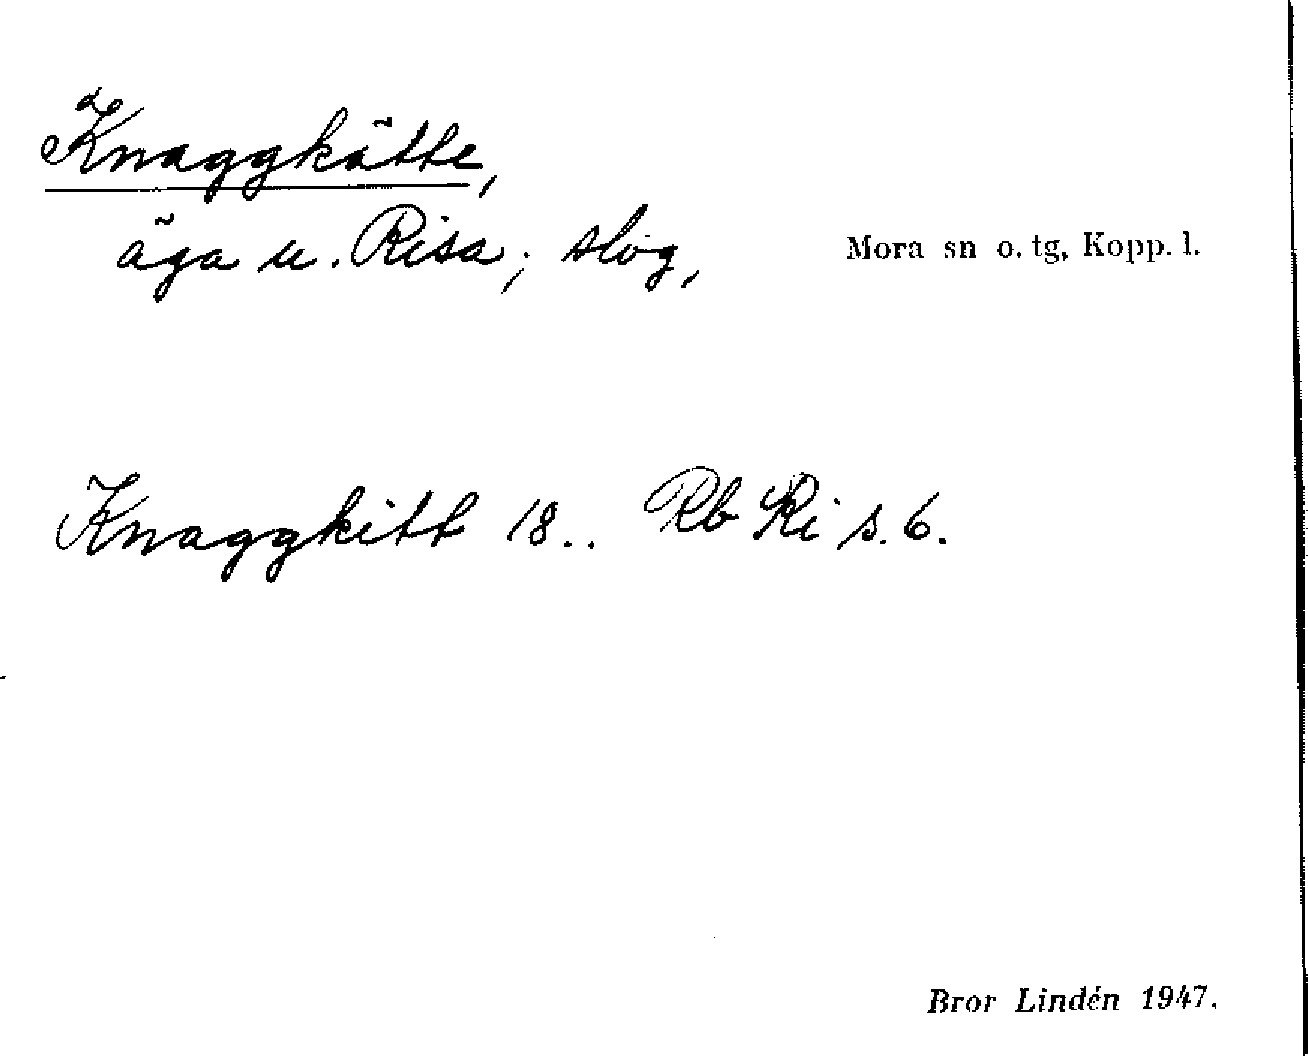 Knaggkätte,
äga u. Risa; slog,
Mora sn o. tg, Kopp. l.
Knaggkitt 18.. Rb Ri s. 6.
Bror Lindén 1947.